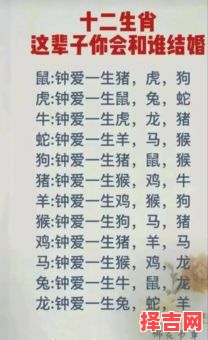 十二生肖
这辈子你会和谁结婚
鼠:钟爱一生猪,虎,狗
虎:钟爱一生鼠,兔,蛇
牛:钟爱一生虎,龙,猪
蛇:钟爱一生羊,马,猴
狗:钟爱一生猪,鼠,猴
猪:钟爱一生猴,鸡,牛
羊:钟爱一生鸡,猴,狗
猴:钟爱一生狗,马,猪
鸡:钟爱一生猪,羊,马
马:钟爱一生猴,鸡,龙
兔:钟爱一生牛,鼠,龙
龙:钟爱一生兔,蛇,羊
择吉网